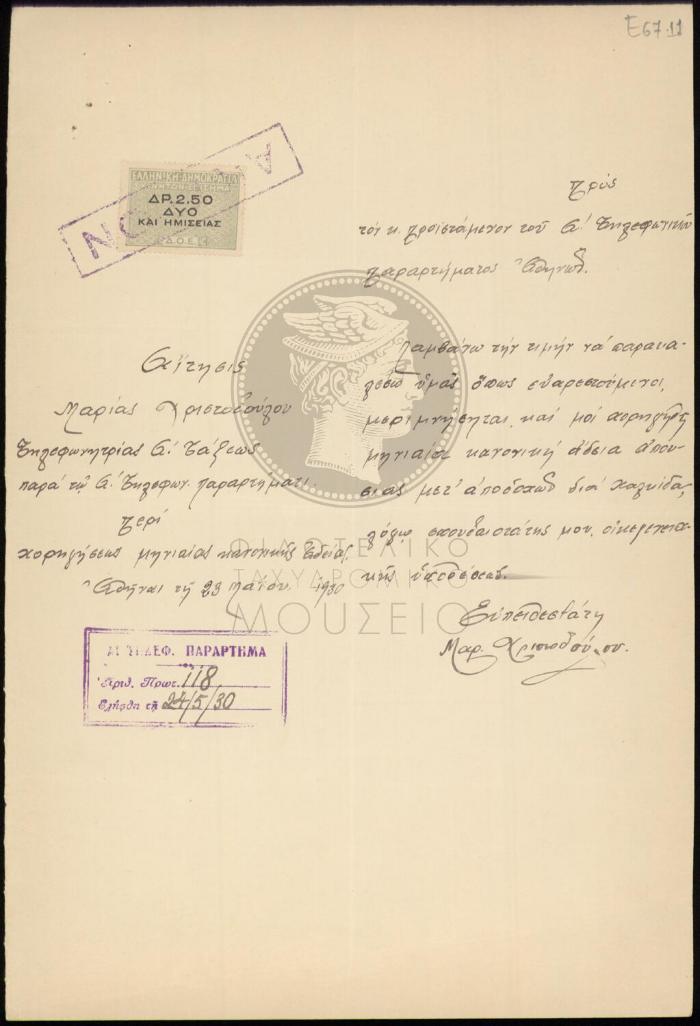 E67.11
ΕΛΛΗΝΙΚΗ ΔΗΜΟΚΡΑΤΙΑ
ΔΡ. 2.50
ΔΥΟ
ΚΑΙ ΗΜΙΣΕΙΑΣ
Δ.Ο.Ε.
Αἴτησις
Μαρίας Χριστοδούλου
Τηλεφωνητρίας Α' Τάξεως
παρὰ τῷ Α' Τηλεφων. παραρτήματι.
Περί
χορηγήσεως μηνιαίας κανονικῆς ἀδείας
Ἀθῆναι τῇ 23 Μαΐου 1930
Α' ΤΗΛΕΦ. ΠΑΡΑΡΤΗΜΑ
Ἀριθ. Πρωτ. 118
Ἐλήφθη τῇ 24/5/30
Πρὸς
τὸν κ. προϊστάμενον τοῦ Α' Τηλεφωνικοῦ
παραρτήματος Ἀθηνῶν.
Λαμβάνω τὴν τιμὴν νὰ παρακα-
λέσω ὑμᾶς ὅπως εὐαρεστούμενοι,
μεριμνήσητε καὶ μοὶ χορηγηθῇ
μηνιαία κανονικὴ ἄδεια ἀπου-
σίας μετ' ἀποδοχῶν διὰ Χαλκίδα,
λόγῳ σπουδαιοτάτης μου οἰκογενεια-
κῆς ὑποθέσεως.
Εὐπειθεστάτη
Μαρ. Χριστοδούλου.
ΦΙΛΟΤΕΛΙΚΟ
ΤΑΧΥΔΡΟΜΙΚΟ
ΜΟΥΣΕΙΟ